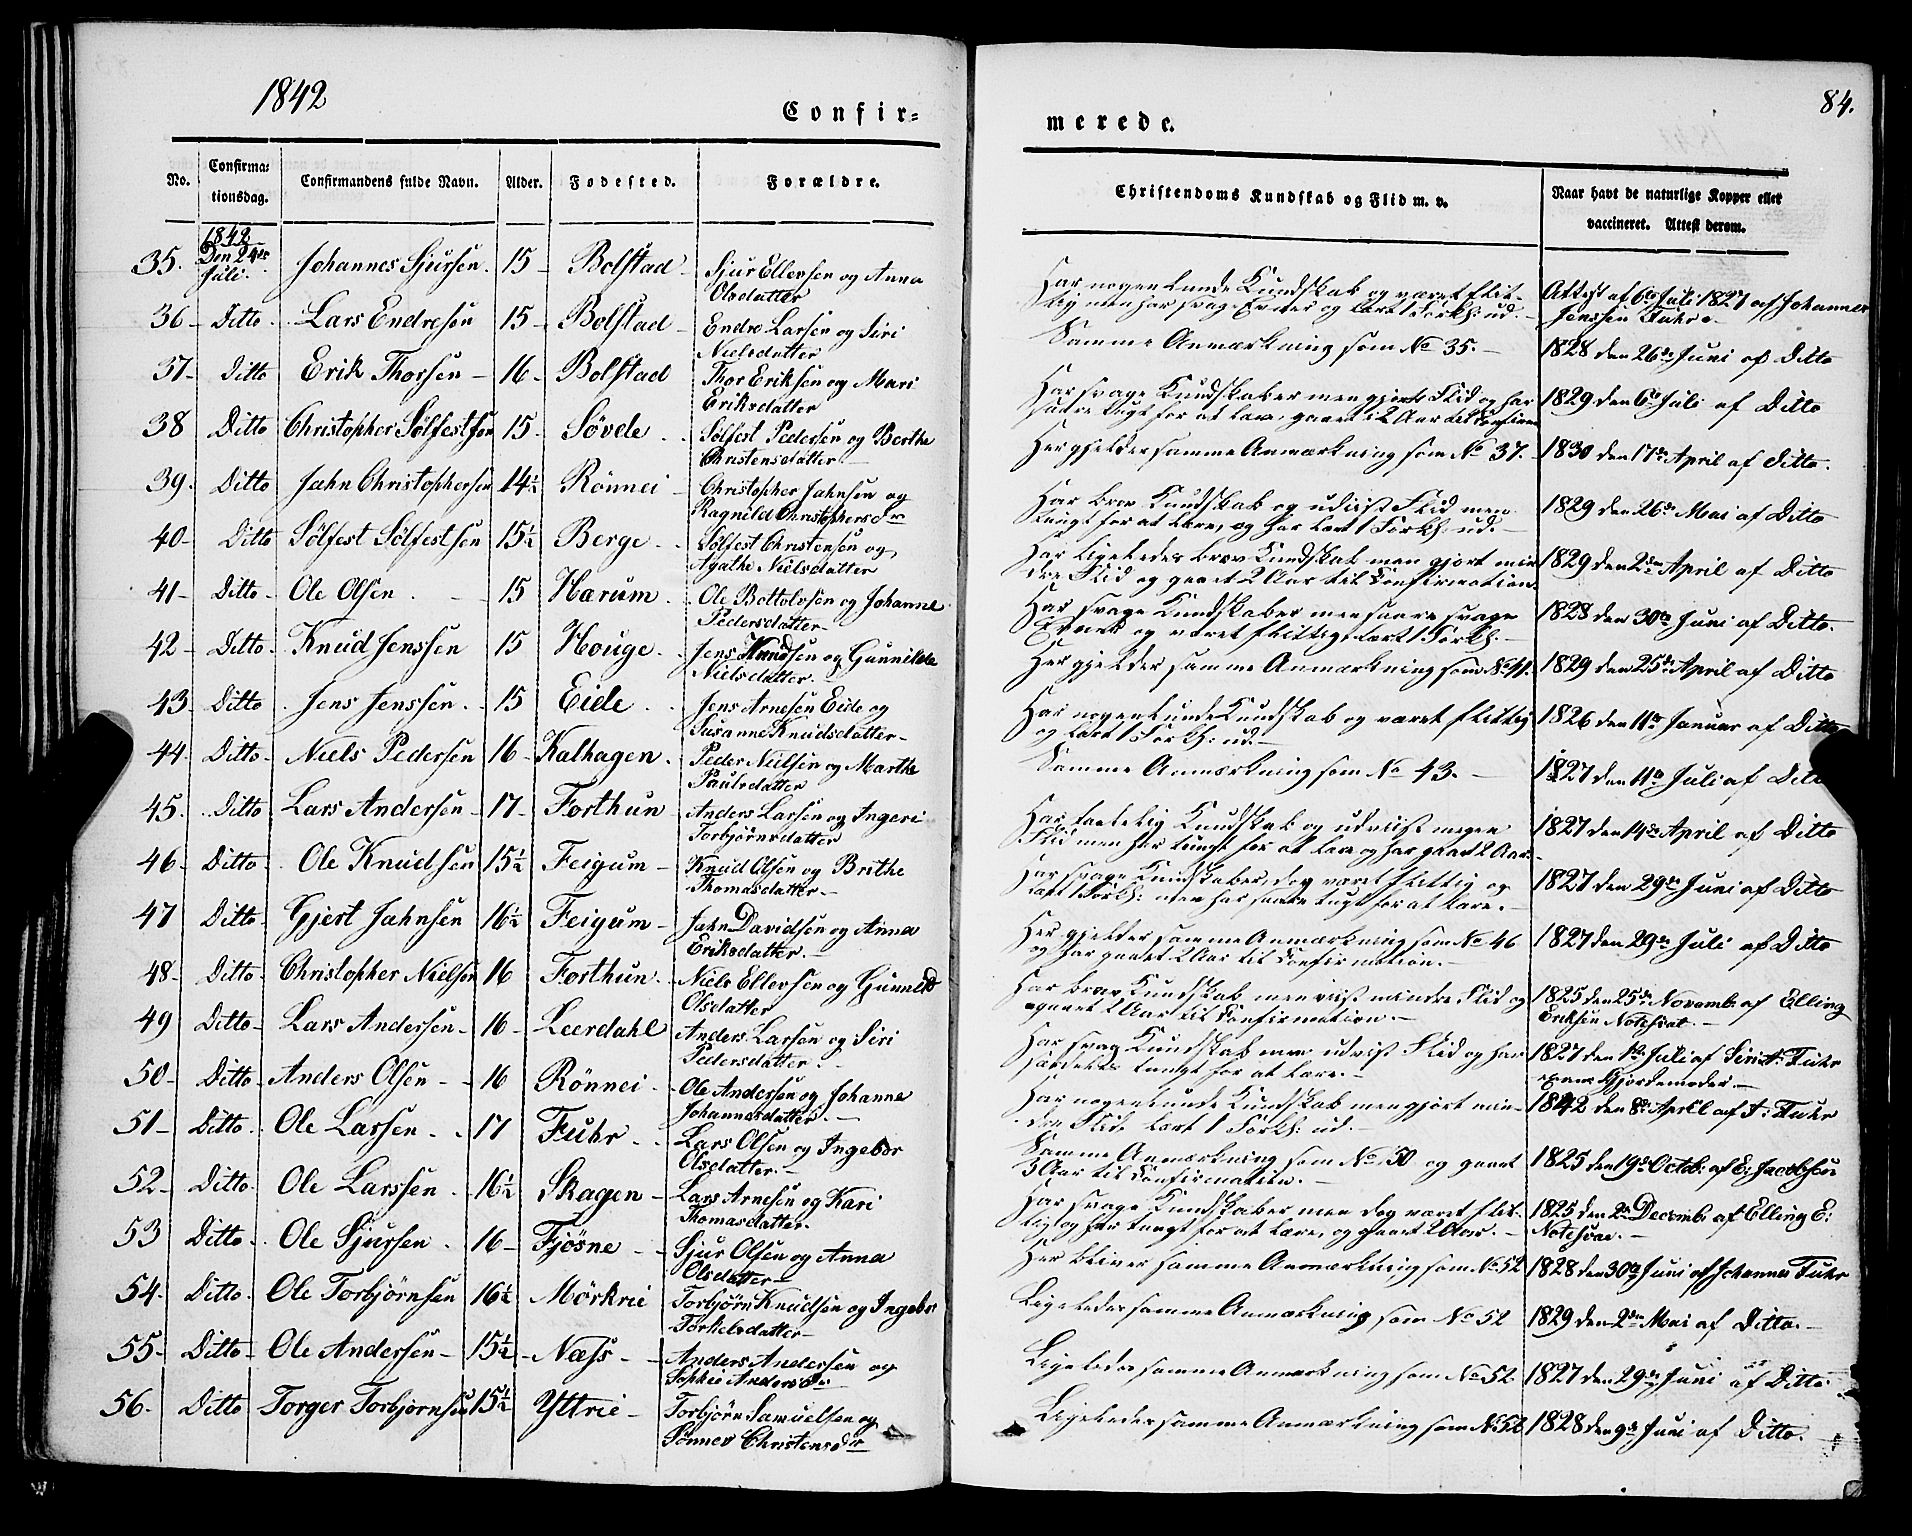 1842
Confir=
No.
Confirma=
tionsdag.
Confirmandens fulde Navn.
Alder.
Fødested.
Forældre.
1842
35. Den 24de Juli. Johannes Sjursen. 15 - Bolstad - Sjur Ellevsen og Anna
Olsdatter
36 - Ditto - Lars Endresen 15 - Bolstad - Endre Larsen og Siri
Nielsdatter
37 - Ditto Erik Thorsen - 16 - Bolstad Thor Eriksen og Mari
Eriksdatter
38 Ditto Christopher Sølfestsen 15 - Søvde - Sølfest Pedersen og Berthe
Christensdatter -
39. Ditto Jahn Christophersen 14½ Rönnei - Christopher Jahnsen og
Ragnild Christophersdr
40 - Ditto Sölfest Sölfestsen 15½ Berge - Sölfest Christensen og
Agathe Nielsdatter
41 - Ditto - Ole Olsen - 15 Harum - Ole Bottolvsen og Johanne
Pedersdatter -
42 - Ditto - Knud Jenssen 15 Houge - Jens Knudsen og Gunnilde
Nielsdatter -
43 - Ditto - Jens Jenssen - 15 Eide - Jens Arnesen Eide og
Susanne Knudsdatter -
44. Ditto - Niels Pedersen 16 - Kalhagen - Peder Nielsen og Marthe
Paulsdatter
45. Ditto - Lars Andersen - 17 - Forthun Anders Larsen og Ingeri
Torbjørnsdatter
46 - Ditto - Ole Knudsen 15½ Feigum - Knud Olsen og Brithe
Thomasdatter -
47 Ditto - Gjert Jahnsen 16½ Feigum - Jahn Davidsen og Anna
Eriksdatter -
48 - Ditto - Christopher Nielsen 16 Forthun - Niels Ellevsen og Gunnild
Olsdatter
49 Ditto - Lars Andersen - 16 - Leerdahl Anders Larsen og Siri
Pedersdatter -
50 - Ditto - Anders Olsen - - 16 Rönnei - Ole Andersen og Johanne
Johannesdatter. -
51 - Ditto - Ole Larsen - - 17 Fuhr - Lars Olsen og Ingebor
Olsdatter -
52 - Ditto - Ole Larssen - 16½ Skagen - Lars Arnesen og Kari
Thomasdatter.
53 Ditto - Ole Sjursen - 16 - Fjösne - - Sjur Olsen og Anna
Olsdatter -
54. Ditto - Ole Torbjörnsen 16½ Mörkrie Torbjörn Knudsen og Ingebor
Torkelsdatter -
55 - Ditto - Ole Andersen - 15½ - Næss - - Anders Andersen og
Sophie Andersdr
56. Ditto Torger Torbjornsen 15½ Yttrie - Torbjörn Samuelsen og
Sönnev Christensdr
84.
merede.
Christendoms Kundskab og Flid m. v.
Naar havt de naturlige Kopper eller
vaccineret. Attest derom.
Har nogenlunde Kundskab og været flit-
tig men har svage Evner og læst 1 Forkl: ud. -
Attest af 6te Juli 1827 af Johannes
Jenssen Fuhr -
Samme Anmærkning som No 35. - 1828 den 26de Juni af Ditto
Har svage Kundskaber men gjort Flid og har
1829 den 6te Juli af Ditto
Her gjelder samme Anmærkning som No 37. - 1830 den 17de April af Ditto.
Har brav Kundskab og udvist Flid men
tungt for at lære, og har læst 1 Forkl: ud. -
1829 den 26de Mai af Ditto
Har ligeledes brav Kundskab men gjort min
dre Flid og gaaet 2 Aar til Confirmation -
1829 den 2den April af Ditto
Har svage Kundskaber men saare svage
Evner og været flittig læst 1 Forkl. -
1828 den 30te Juni af Ditto.
Her gjelder samme Anmærkning som No 41. 1829 den 25de April af Ditto
Har nogenlunde Kundskab og været flittig
og læst 1 Forkl: ud. -
1826 den 11te Januar af Ditto
Samme Anmærkning som No 43. - 1827 den 11te Juli af Ditto
Har taalelig Kundskab og udviist megen
Flid men har tungt for at lære og har gaaet 2 Aar. -
1827 den 14de April af Ditto
Har svage Kundskaber, dog været flittig og
læst 1 Forkl: men har saare tungt for at lære. -
1827 den 29de Juni af Ditto
Her gjelder samme Anmærkning som No 46
og har gaaet 2 Aar til Confirmation. -
1827 den 29de Juli af Ditto
Har brav Kundskab men viist mindre Flid og
gaaet 2 Aar til Confirmation. -
1825 den 25de Novemb: af Elling
Eriksen Notesvat. -
Har svag Kundskab men udvist Flid og har
særdeles tungt for at lære. -
1827 den 1te Juli af Siri A: Fuhr
exam: Gjordemoder. -
Har nogenlunde Kundskab men gjort min-
dre Flid læst 1 Forkl: ud. -
1842 den 8de April af A: Fuhr
Samme Anmærkning som No 50 og gaaet
3 Aar til Confirmation. -
1825 den 19de Octob: af E: Jacobsen
Har svage Kundskaber men dog været flit-
tig og har tungt for at lære, og gaaet 2 Aar. -
1825 den 2den Decemb: af Elling E:
Notesvat. -
Her bliver samme Anmærkning som No 52 1828 den 30te Juni af Johannes Fuhr
Ligeledes samme Anmærkning som No 52 1829 den 2den Mai af Ditto. -
Ligeledes samme Anmærkning som No 52 1827 den 29de Juni af Ditto
Ligeledes samme Anmærkning som No 52 1828 den 9de Juni af Ditto.